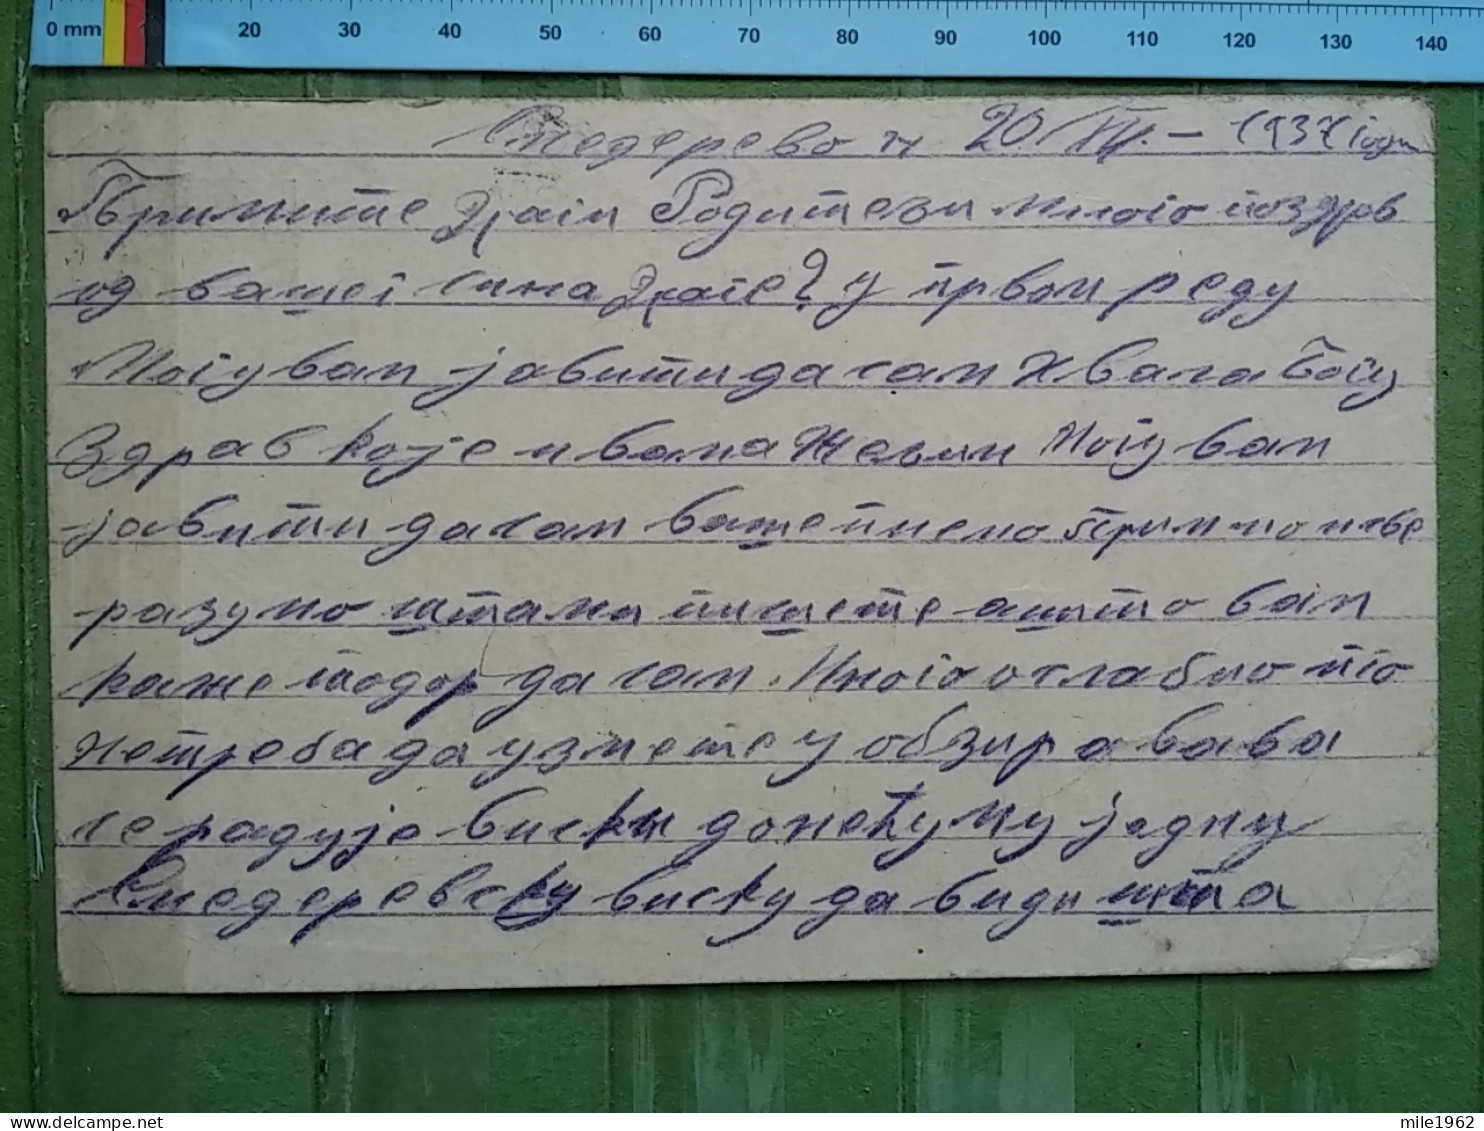 0 mm 20 30 40 50 60 70 80 90 100 110 120 130 140
Смедерево 20/XII. — 1937 годи
Примите драги Родитељи много поздрав
од вашег сина Драге? у првом реду
Могу вам јавити да сам хвала богу
Здрав које и вама желим Могу вам
јавити да сам ваше писмо примио и све
разумо шта ми пишете а што вам
каже тодор да сам много ослабио то
нетреба да узмете у обзир а баба
се радује биски донећу му једну
Смедеревску биску да види шта
mile1962